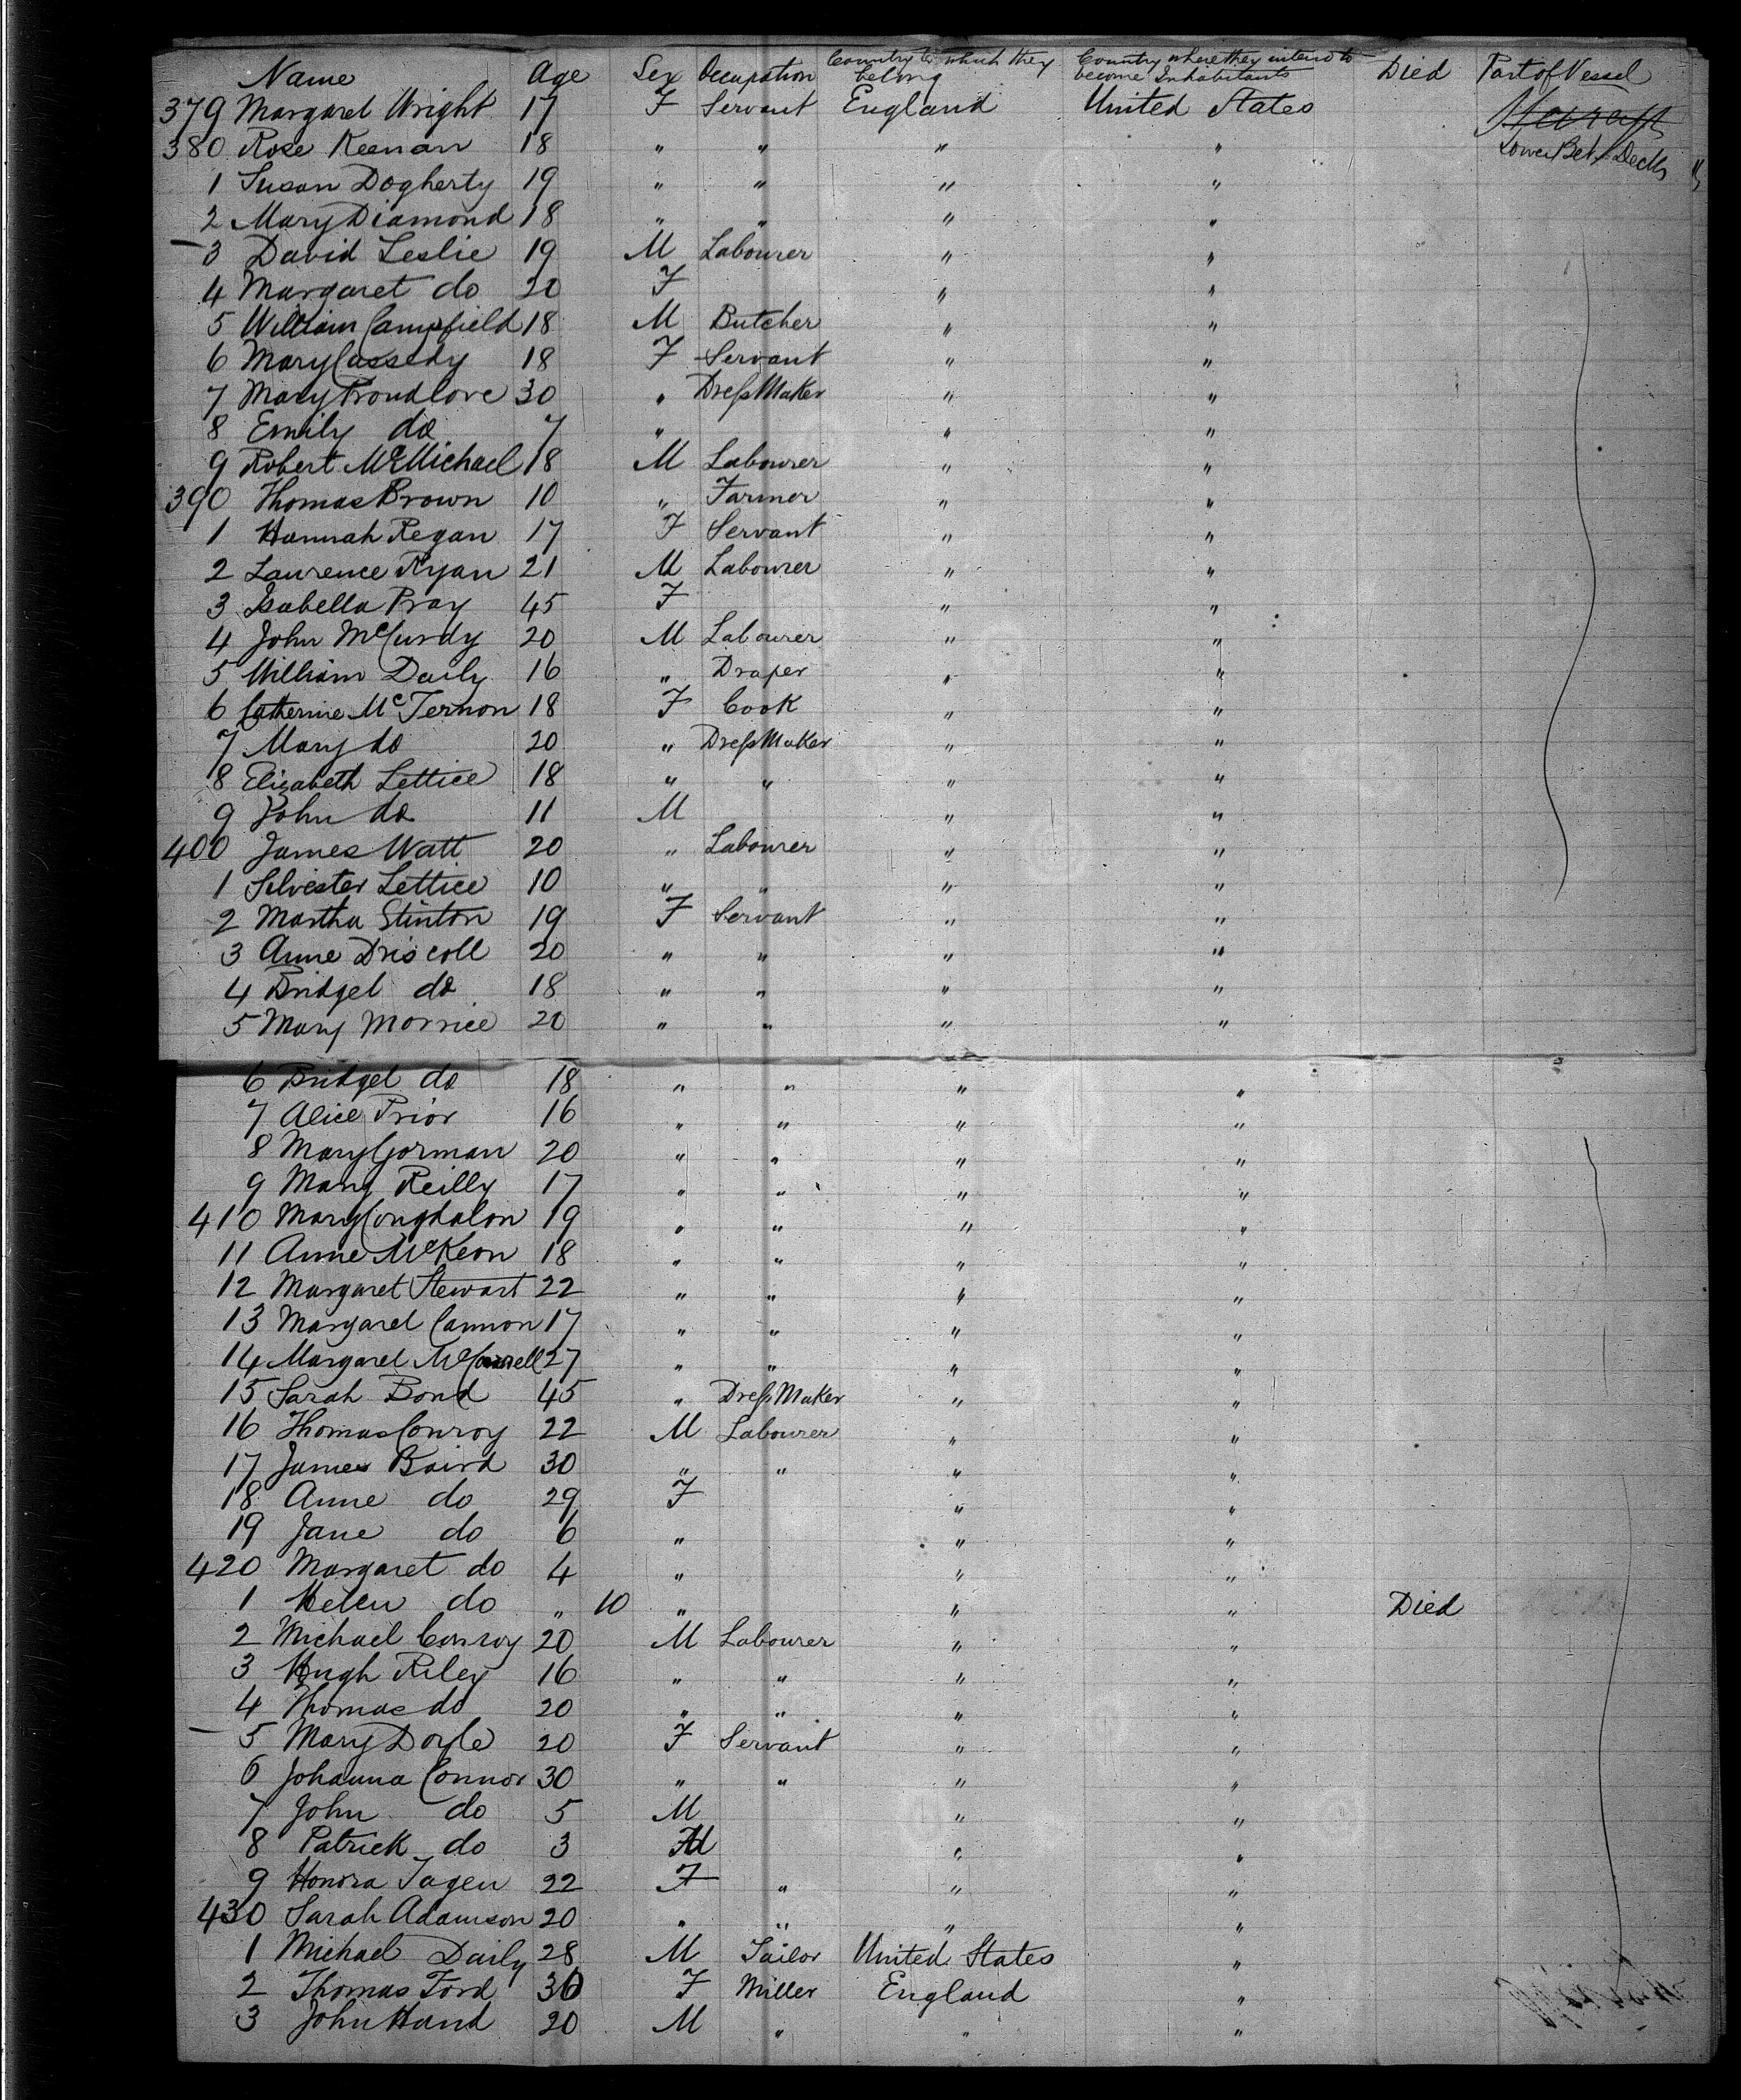 Name Age Sex Occupation Country to which they belong Country where they intend to become Inhabitants Died Part of Vessel
379 Margaret Wright 17 F Servant England United States
380 Rose Keenan 18 " " " " Lower Bet. Decks "
1 Susan Dogherty 19 " " " "
2 Mary Diamond 18 " " " "
3 David Leslie 19 M Labourer " "
4 Margaret do 20 F " "
5 William Campfield 18 M Butcher " "
6 Mary Cassedy 18 F Servant " "
7 Mary Proudlove 30 " Dress Maker " "
8 Emily do 7 " " "
9 Robert McMichael 18 M Labourer " "
390 Thomas Brown 10 " Farmer " "
1 Hannah Regan 17 F Servant " "
2 Laurence Ryan 21 M Labourer " "
3 Isabella Pray 45 F " "
4 John McCurdy 20 M Labourer " "
5 William Daily 16 " Draper " "
6 Catherine McTernon 18 F Cook " "
7 Mary do 20 " Dress Maker " "
8 Elizabeth Lettice 18 " " " "
9 John do 11 M " "
400 James Watt 20 " Labourer " "
1 Silvester Lettice 10 " " " "
2 Martha Stinton 19 F Servant " "
3 Anne Driscoll 20 " " " "
4 Bridget do 18 " " " "
5 Mary Morrice 20 " " " "
6 Bridget do 18 " " " "
7 Alice Prior 16 " " " "
8 Mary Gorman 20 " " " "
9 Mary Reilly 17 " " " "
410 Mary Conghalon 19 " " " "
11 Anne McKeon 18 " " " "
12 Margaret Stewart 22 " " " "
13 Margaret Cannon 17 " " " "
14 Margaret 27 " " " "
15 Sarah Bond 45 " Dress Maker " "
16 Thomas Conroy 22 M Labourer " "
17 James Baird 30 " " " "
18 Anne do 29 F " "
19 Jane do 6 " " "
420 Margaret do 4 " " "
1 Helen do " 10 " " " Died
2 Michael Conroy 20 M Labourer " "
3 Hugh Riley 16 " " " "
4 Thomas do 20 " " " "
5 Mary Doyle 20 F Servant " "
6 Johanna Connor 30 " " " "
7 John do 5 M " "
8 Patrick do 3 M " "
9 Honora Tagen 22 F " " "
430 Sarah Adamson 20 " " " "
1 Michael Daily 28 M Tailor United States "
2 Thomas Ford 30 F Miller England "
3 John Hand 20 M " " "